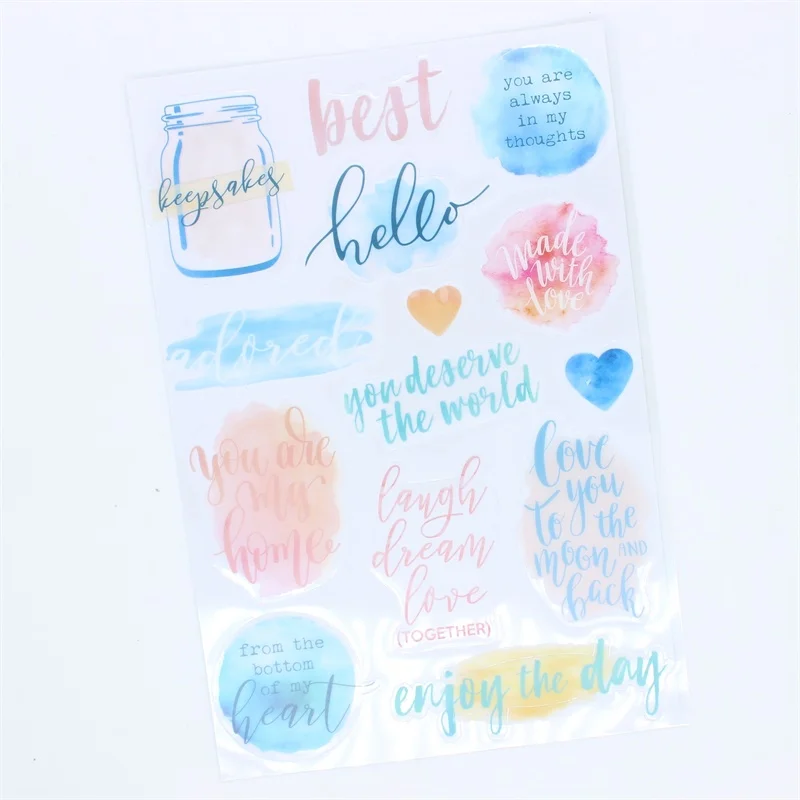 best
you are
always
in my
thoughts
keepsakes
hello
made
with
love
adored
you deserve
the world
you are
my
home
laugh
dream
love
(TOGETHER)
love
you
to the
moon AND
back
from the
bottom
of my
heart
enjoy the day